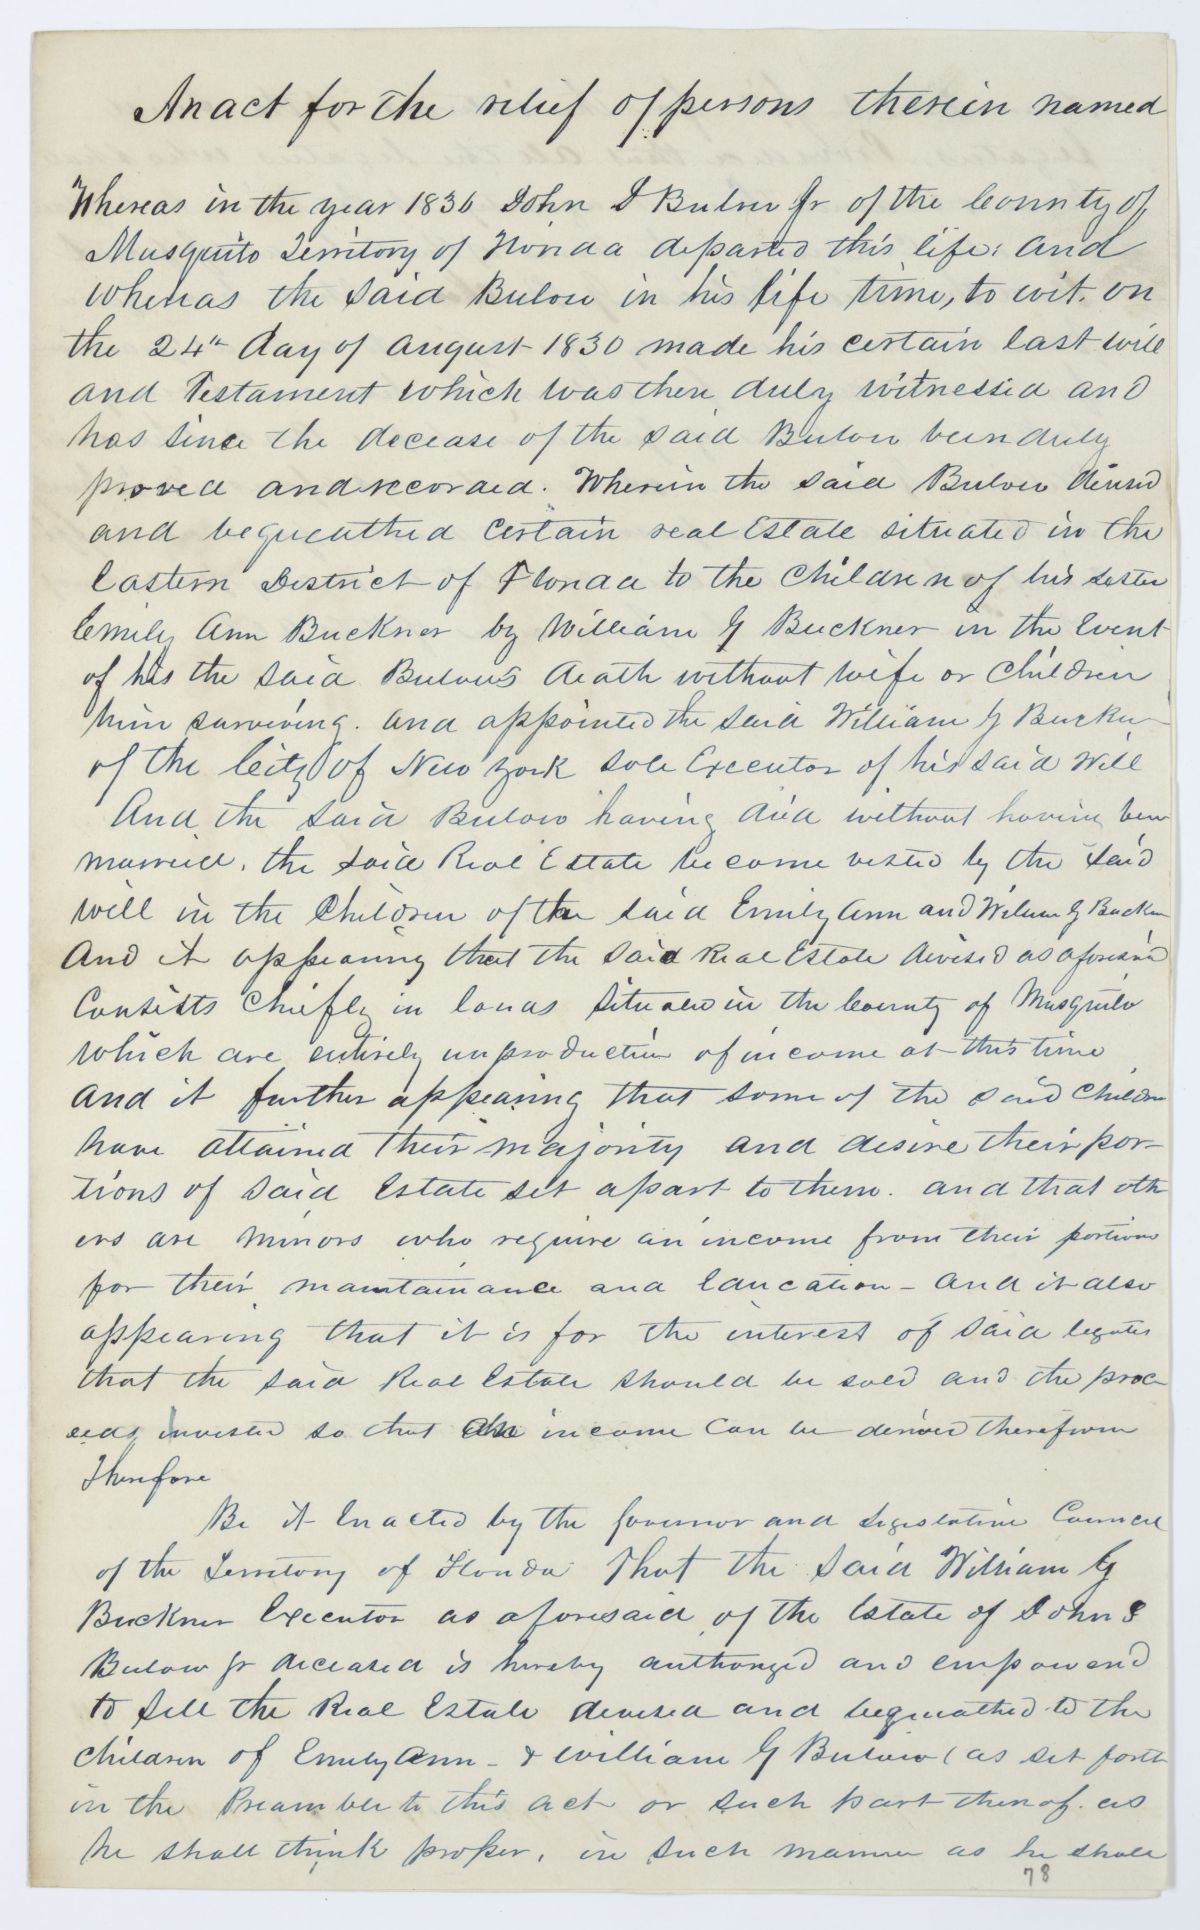 An act for the relief of persons therein named
Whereas in the year 1836 John J Bulow Jr of the County of
Musquito Territory of Florida departed this life; and
whereas the said Bulow in his life time, to wit. on
the 24th day of August 1830 made his certain last will
and Testament which was then duly witnessed and
has since the decease of the said Bulow been duly
proved and recorded. Wherein the said Bulow devised
and bequeathed certain real Estate situated in the
Eastern District of Florida to the children of his sister
Emily Ann Buckner by William G Buckner in the Event
of his the said Bulows death without wife or children
him surviving. and appointed the said William G Buckner
of the City of New York sole Executor of his said Will
And the said Bulow having died without having been
married, the said Real Estate became vested by the said
will in the Children of the said Emily Ann and William G Buckner
And it appearing that the said Real Estate devised as aforesaid
Consists Chiefly in lands situated in the County of Musquito
which are entirely unproductive of income at this time
And it further appearing that some of the said Children
have attained their majority and desire their por-
tions of said Estate set apart to them. and that oth
ers are minors who require an income from their portions
for their maintainance and Education - And it also
appearing that it is for the interest of said legatees
that the said Real Estate should be sold and the proc
eeds invested so that an income can be derived therefrom
Therefore
Be it Enacted by the Governor and Legislative Council
of the Territory of Florda That the said William G
Buckner Executor as aforesaid of the Estate of John J
Bulow Jr deceased is hereby authorized and empowered
to sell the Real Estate devised and bequeathed to the
children of Emily Ann - & William G Bulow (as set forth
in the Preamble to this act or such part thereof. as
he shall think proper, in such manner as he shall
78